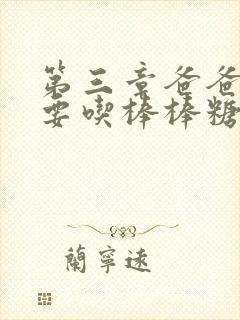 第三章爸爸
要喫棒棒糖
蘭寧遠